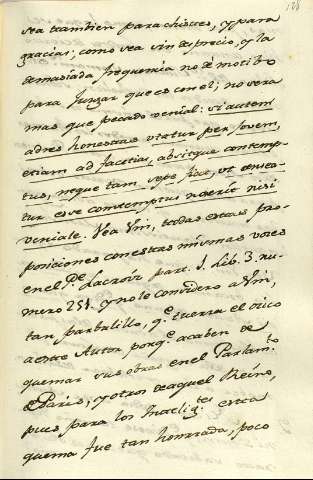 108
sea tambien para chistes, y para
gracias; como sea sin desprecio, y la
demasiada frequenia no dè motivo
para Juzgar que es con el; no sera
mas que pecado venial: si autem
ad res honestas vtatur per Jovem,
etiam ad facetias, absitque contemp-
tus, neque tam sepe fiat, vt censea-
tur esse comtemptus noerit nisi
veniale. Vea Vm, todas estas pro-
posiciones con estas mismas voces
en el P.e Lacroix part. 1. Lib. 3. nu-
mero 251. y no le considero a Vm,
tan parbulillo, q.e tuerza el ocico
a este Autor porq.e acaben de
quemar sus obras en el Parlam.to
de Paris, y otros de aquel Reino,
pues para los Intelig.tes esta
quema fue tan honrrada, poco